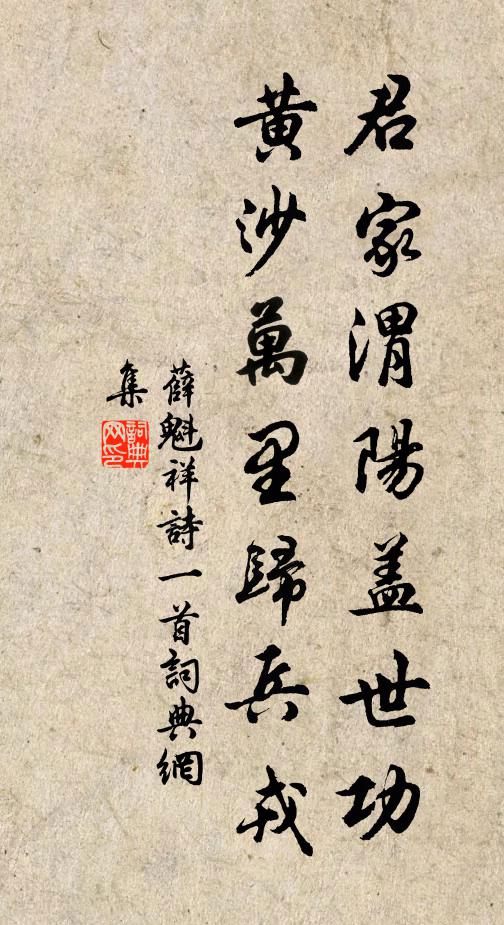 君家渭陽盖世功
黄沙萬里歸兵戎
薛魁祥詩一首詞典網
集
詞典
网印